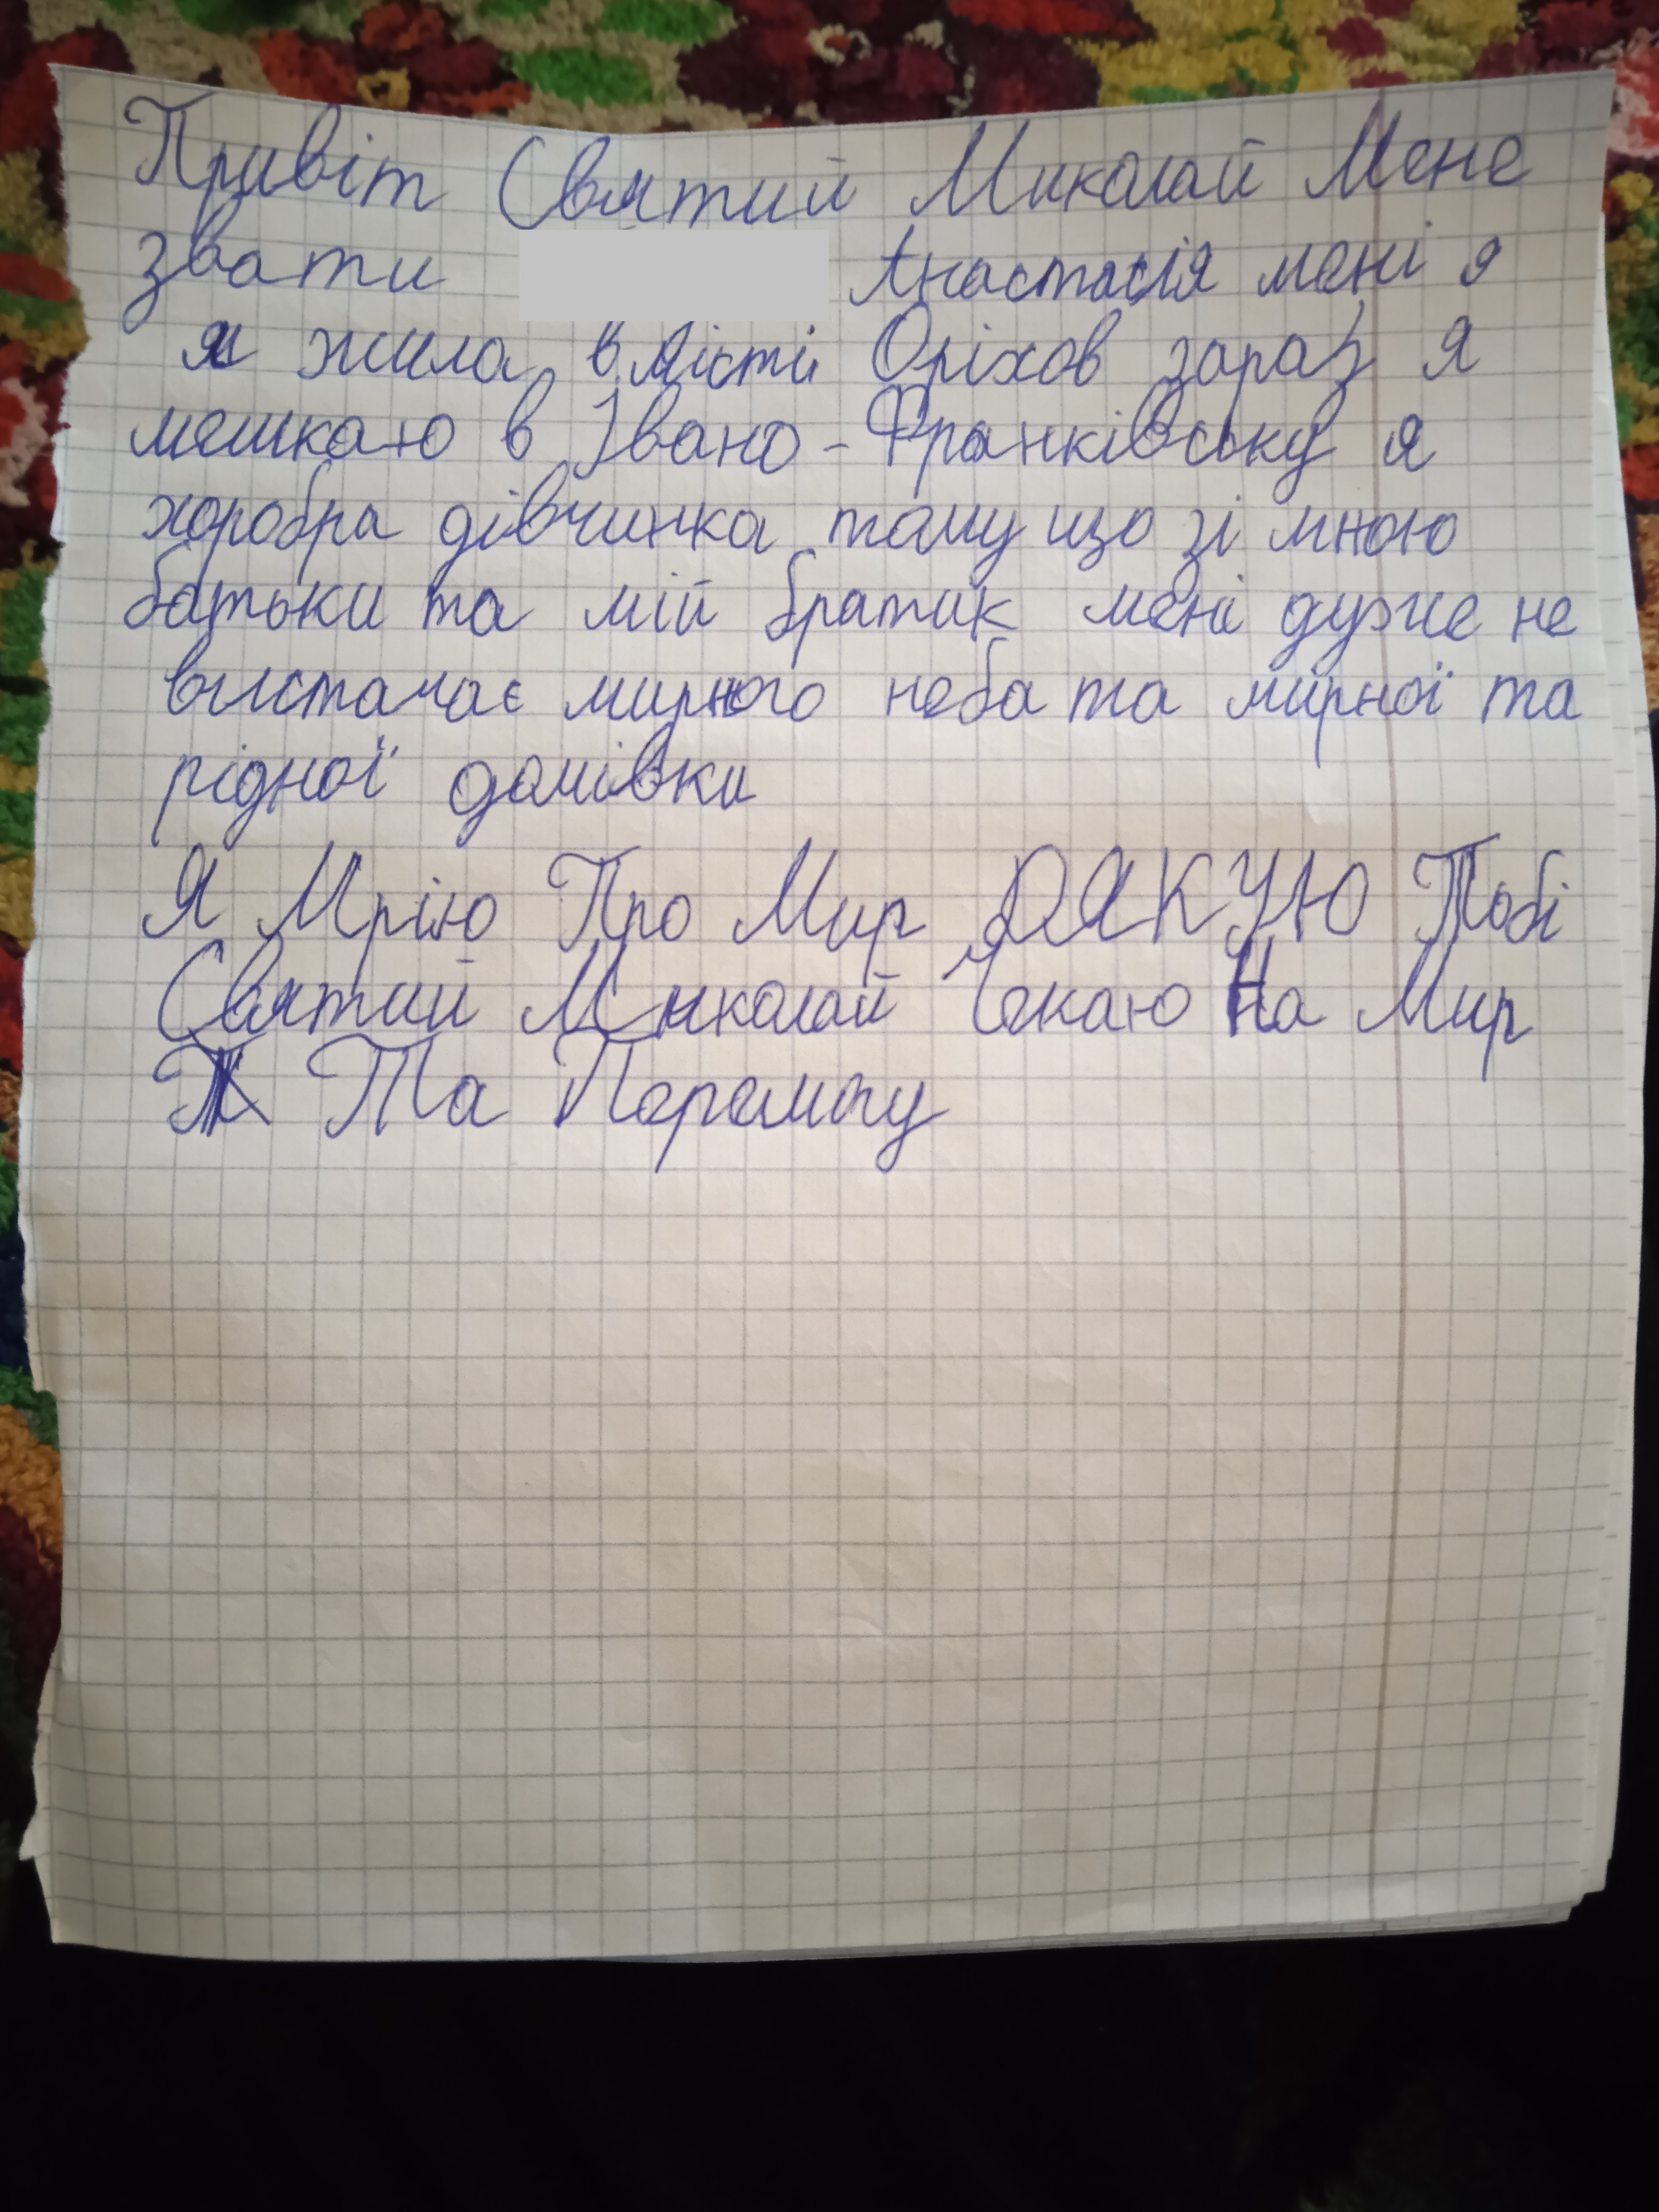 Привіт Святий Миколай Мене
звати Анастасія мені 9
я жила в місті Оріхов зараз я
мешкаю в Івано-Франківську я
хоробра дівчинка тому що зі мною
батьки та мій братик мені дуже не
вистачає мирного неба та мирної та
рідної домівки
Я Мрію Про Мир ДЯКУЮ Тобі
Святий Миколай Чекаю На Мир
Та Перемогу